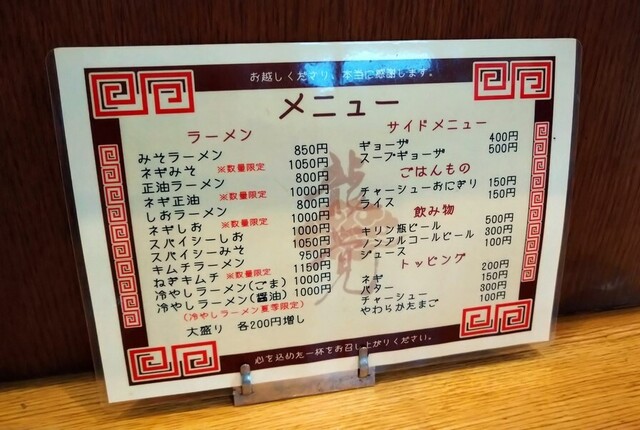 お越しくださり、本当に感謝します。
メニュー
ラーメン
みそラーメン 850円
ネギみそ ※数量限定 1050円
正油ラーメン 800円
ネギ正油 ※数量限定 1000円
しおラーメン 800円
ネギしお ※数量限定 1000円
スパイシーしお 1000円
スパイシーみそ 1050円
キムチラーメン 950円
ねぎキムチ ※数量限定 1150円
冷やしラーメン(ごま) 1000円
冷やしラーメン(醤油) 1000円
(冷やしラーメン夏季限定)
大盛り 各200円増し
サイドメニュー
ギョーザ 400円
スープギョーザ 500円
ごはんもの
チャーシューおにぎり 150円
ライス 150円
飲み物
キリン瓶ビール 500円
ノンアルコールビール 300円
ジュース 100円
トッピング
ネギ 200円
バター 150円
チャーシュー 300円
やわらかたまご 100円
心を込めた一杯をお召し上がりください。